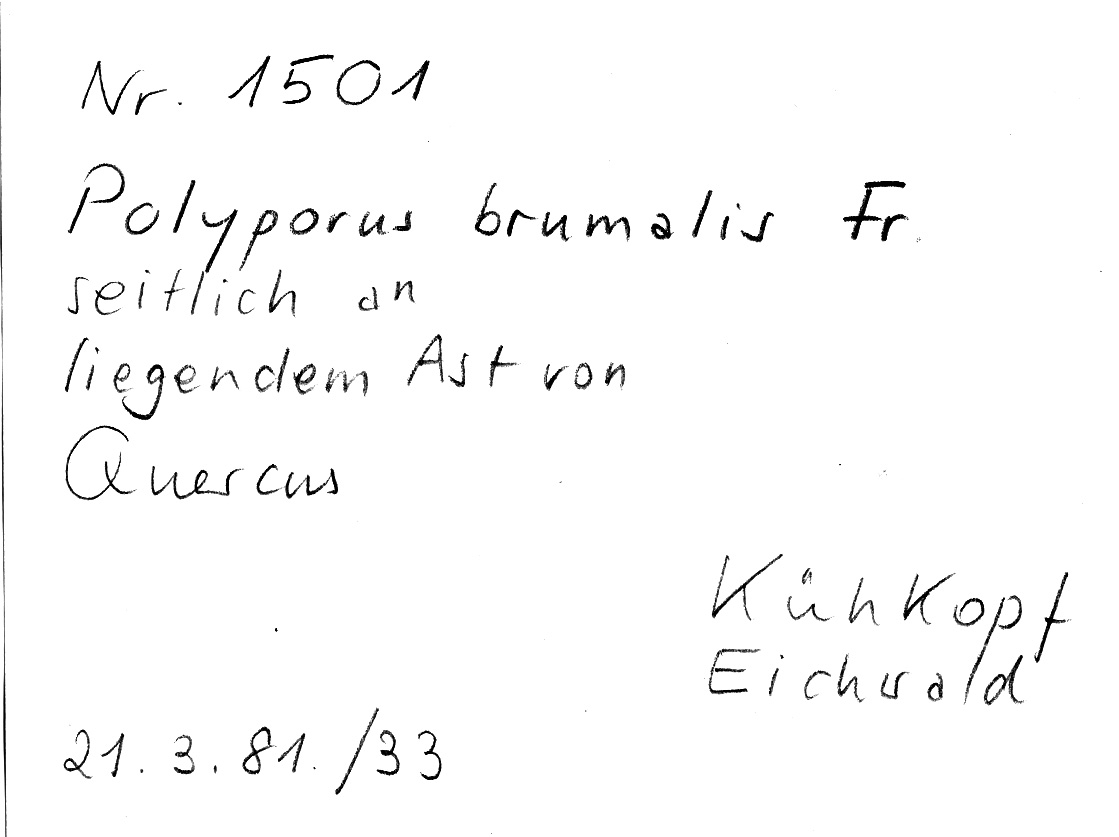 Nr. 1501
Polyporus brumalis Fr.
seitlich an
liegendem Ast von
Quercus
Kühkopf
Eichwald
21. 3. 81. /33